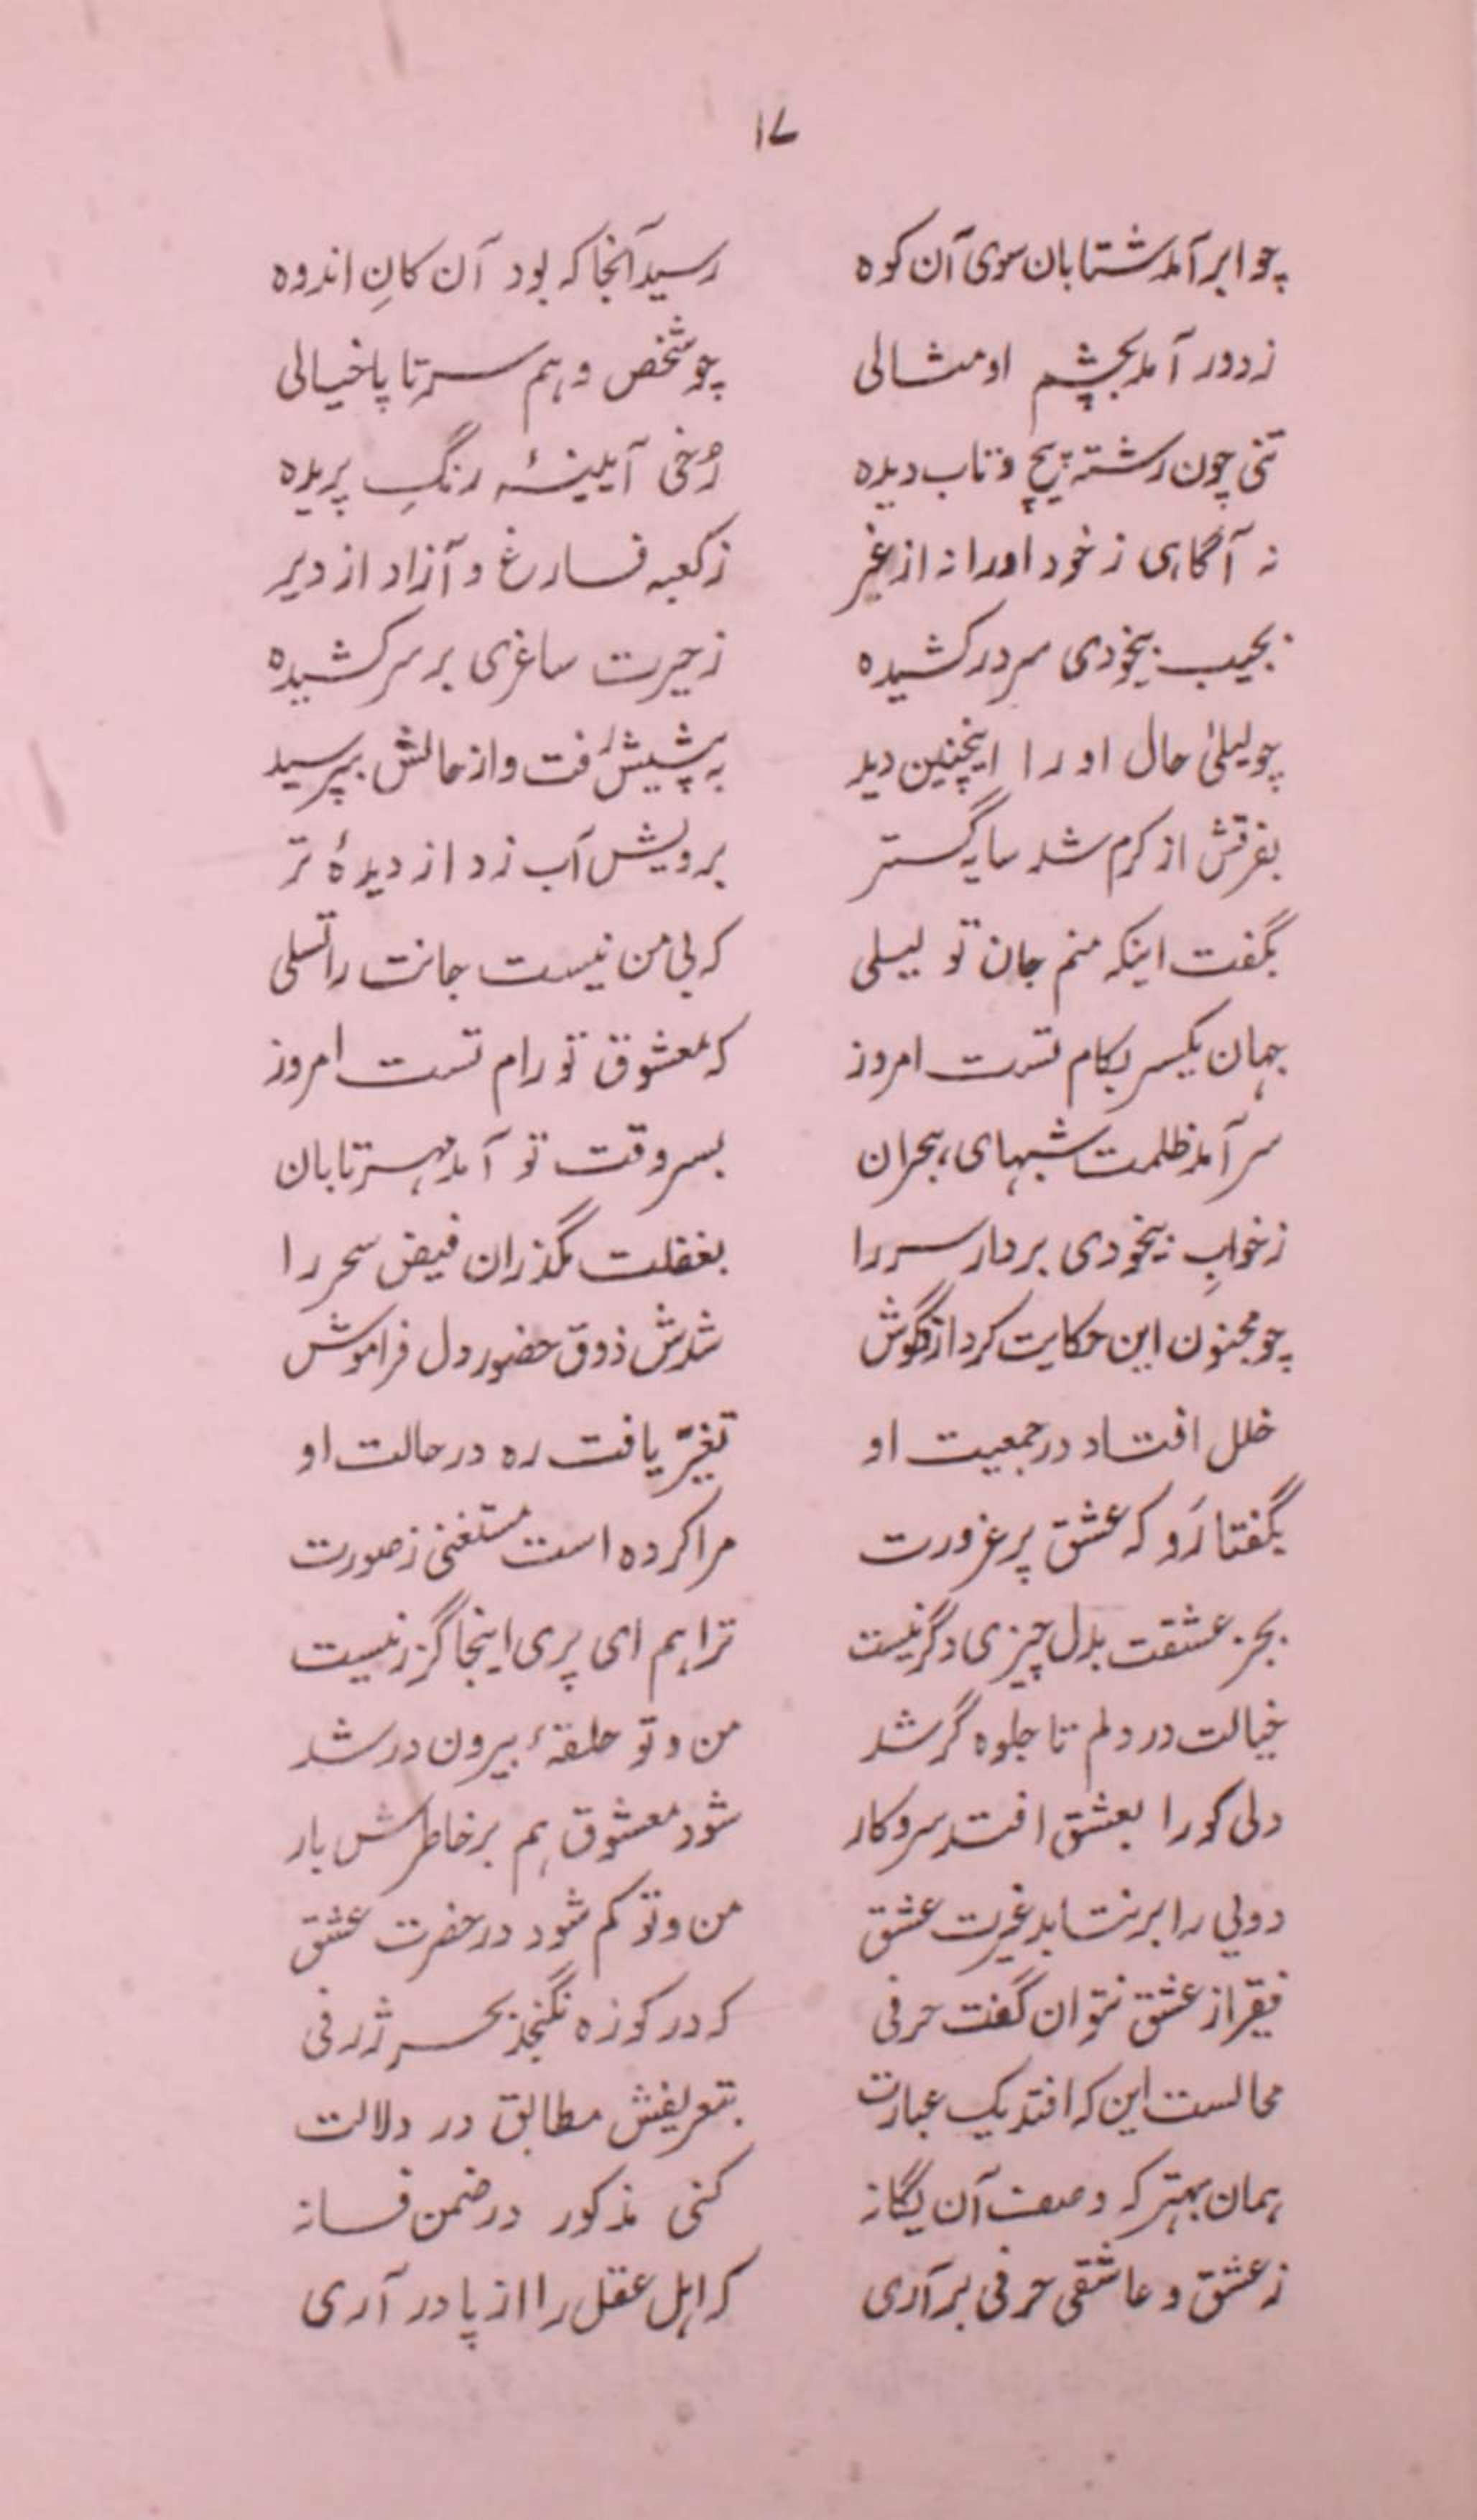 ۱۷
چو ابر آمد شتابان سوی آن کوه رسید آنجا که بود آن کانِ اندوه
ز دور آمد بچشم او مثالی چو شخص وہم سر تا پا خیالی
تنی چون رشتہ پیچ و تاب دیده رُخی آیینۂ رنگِ پریده
نہ آگاہی ز خود او را نہ از غیر ز کعبہ فارغ و آزاد از دیر
بجیب بیخودی سر در کشیده ز حیرت ساغری بر سر کشیده
چو لیلیٰ حال او را اینچنین دید بہ پیشش رفت و از حالش بپرسید
بفرقش از کرم شد سایہ گستر برویش آب زد از دیدۂ تر
بگفت اینکہ منم جان تو لیلی کہ بی من نیست جانت را تسلی
جہان یکسر بکام تست امروز کہ معشوق تو رام تست امروز
سر آمد ظلمت شبہای ہجران بسر وقت تو آمد مہر تابان
ز خوابِ بیخودی بردار سر را بغفلت مگذران فیض سحر را
چو مجنون این حکایت کرد از گوش شدش ذوق حضور دل فراموش
خلل افتاد در جمعیت او تغیّر یافت ره در حالت او
بگفتا رَو کہ عشق پر غرورت مرا کرده است مستغنی ز صورت
بجز عشقت بدل چیزی دگر نیست ترا ہم ای پری اینجا گزر نیست
خیالت در دلم تا جلوه گر شد من و تو حلقۂ بیرون در شد
دلی کو را بعشق افتد سر و کار شود معشوق ہم بر خاطرش بار
دویی را بر نتابد غیرت عشق من و تو کم شود در حضرت عشق
فقیر از عشق نتوان گفت حرفی کہ در کوزه نگنجد بحر ژرفی
محالست این کہ افتد یک عبارت بتعریفش مطابق در دلالت
ہمان بہتر کہ وصف آن یگانہ کنی مذکور در ضمن فسانہ
ز عشق و عاشقی حرفی بر آری کہ اہل عقل را از پا در آری